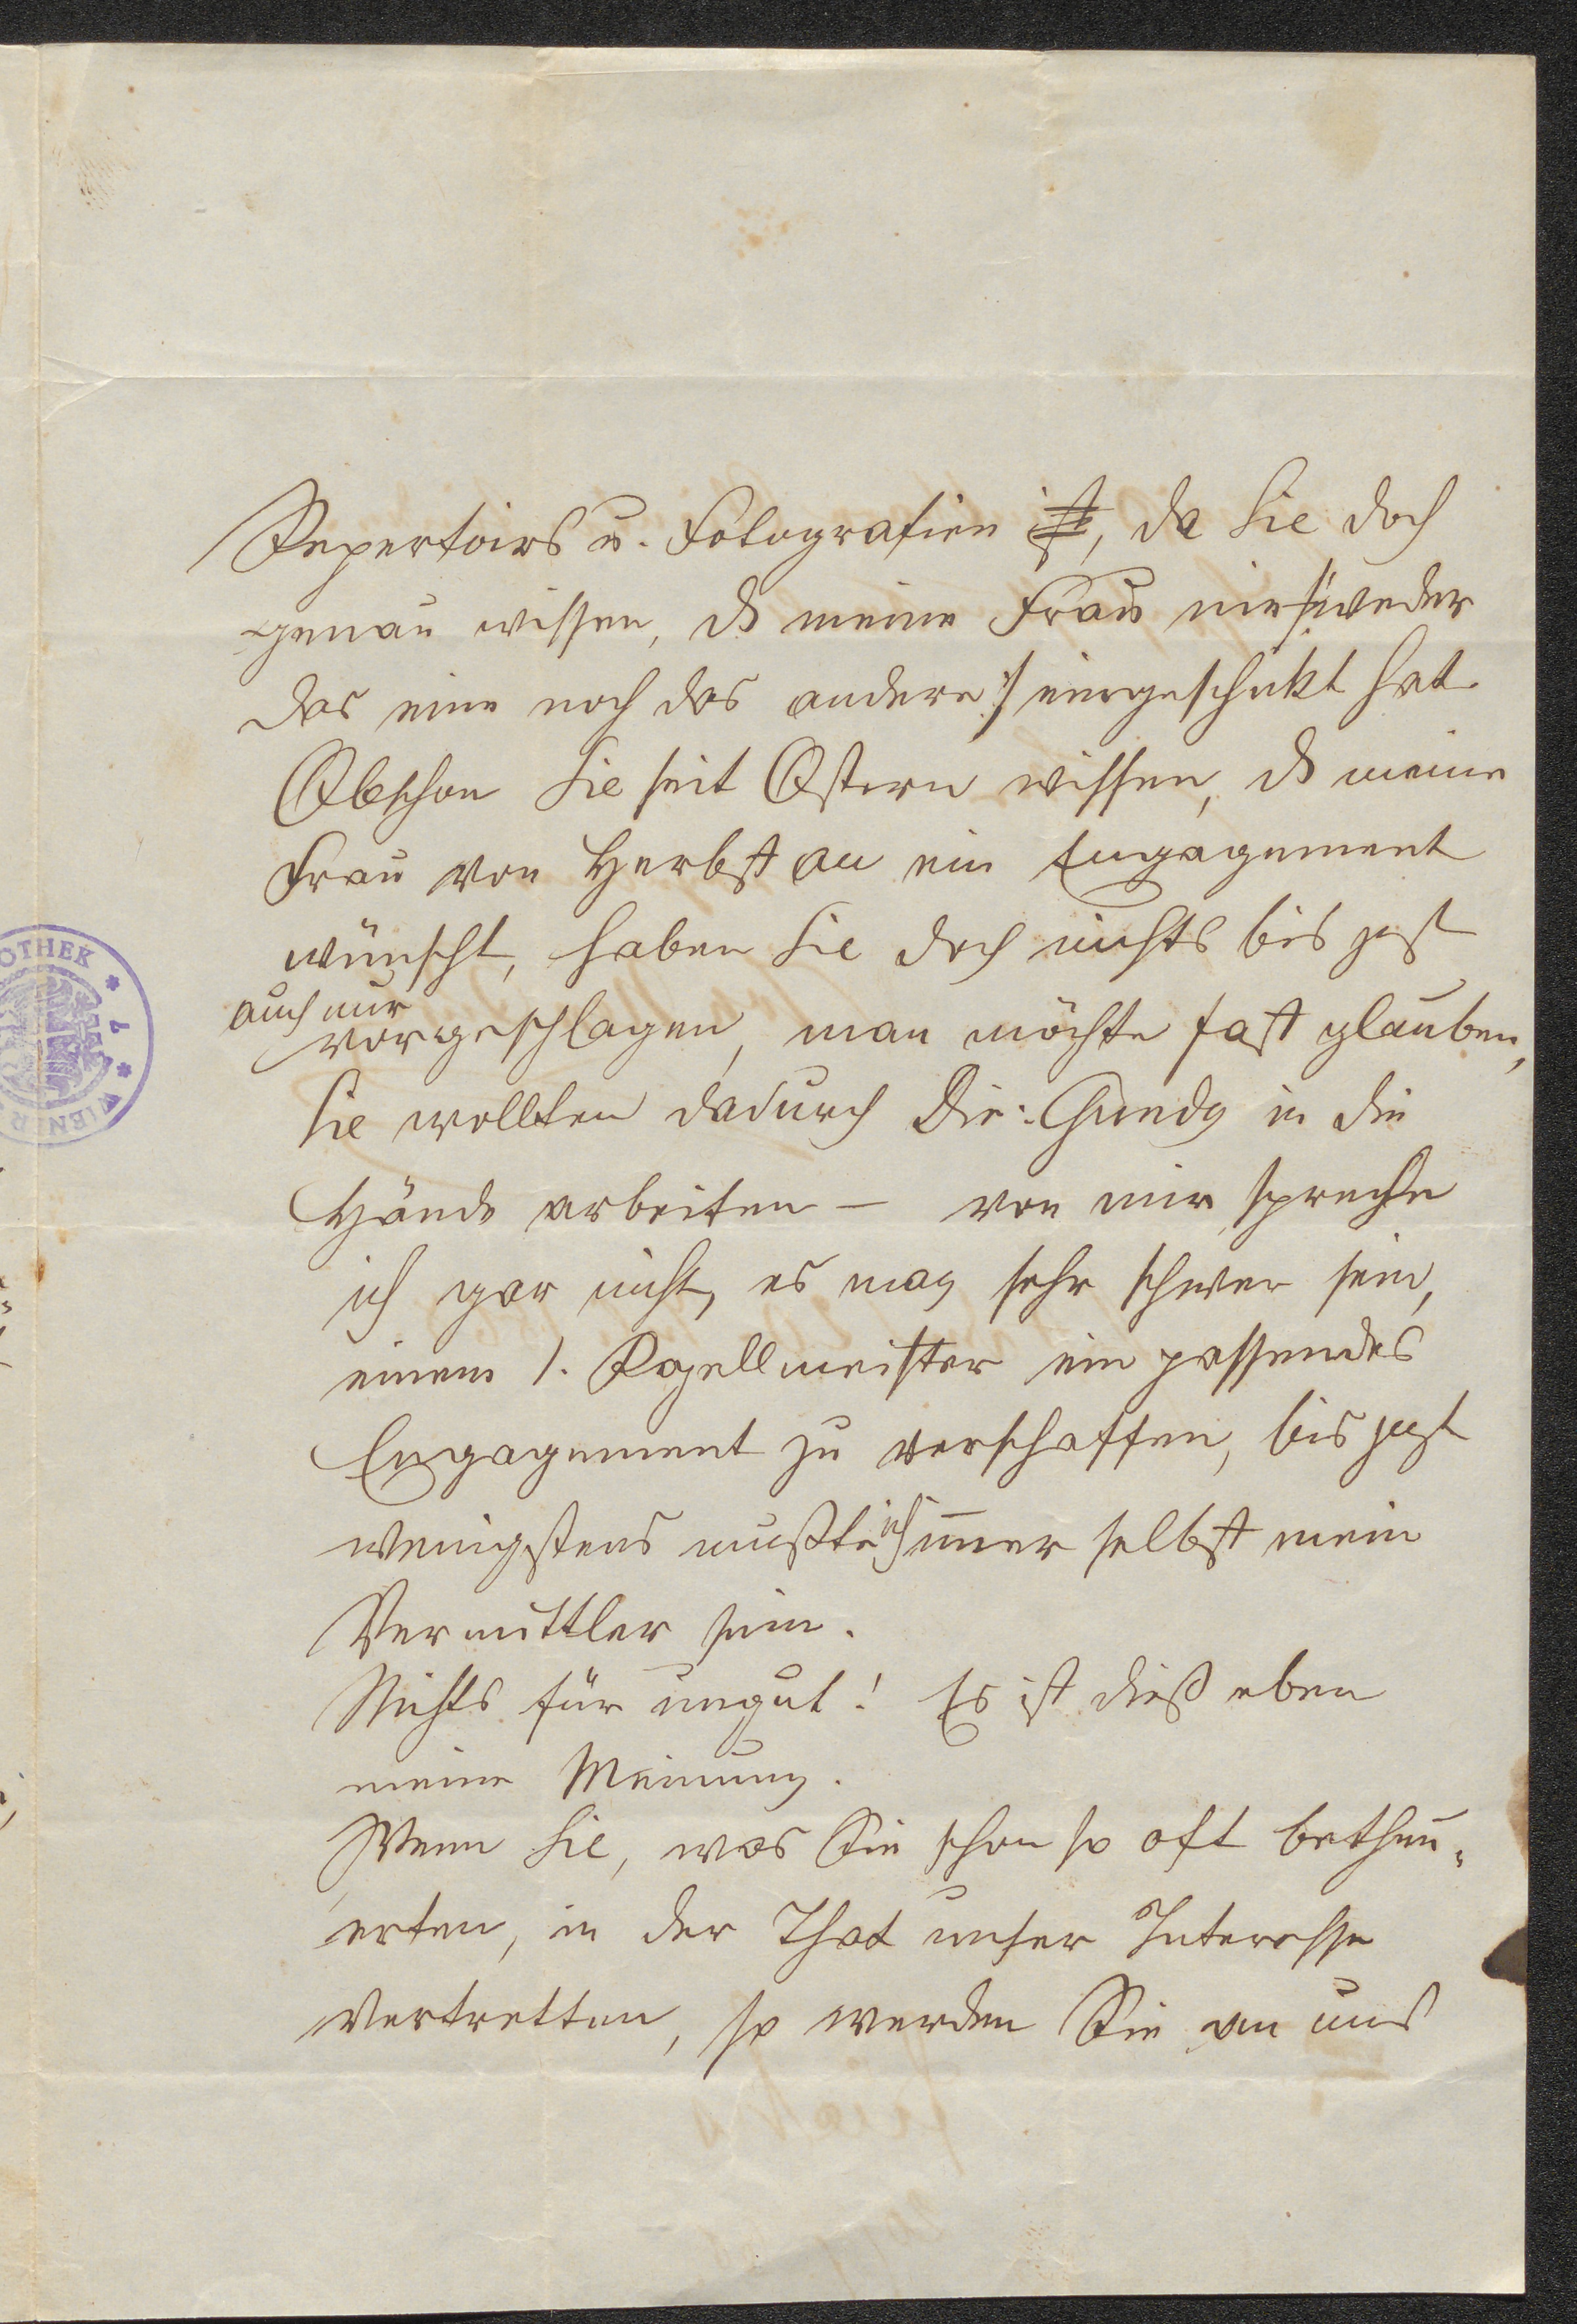 Repertoirs u. Fotografien ist, da Sie doch
genau wissen, ds meine Frau nie /:weder
das eine noch das andere:/ eingeschikt hat.
Obschon Sie seit Ostern wissen, ds meine
Frau von Herbst an ein Engagement
wünscht, haben Sie doch nichts bis jezt
auch nur
vorgeschlagen, man möchte fast glauben,
Sie wollten dadurch Dir: Gundy in die
Hände arbeiten – von mir spreche
ich gar nicht, es mag sehr schwer sein,
einem 1. Kapellmeister ein passendes
Engagement zu verschaffen, bis jezt
wenigstens mußte ich im̄er selbst mein
Vermittler sein.
Nichts für ungut! Es ist dieß eben
meine Meinung.
Wenn Sie, was Sie schon so oft betheu-
erten, in der That unser Interesse
vertretten, so werden Sie an uns
OTHEK * 7 * WIEN R